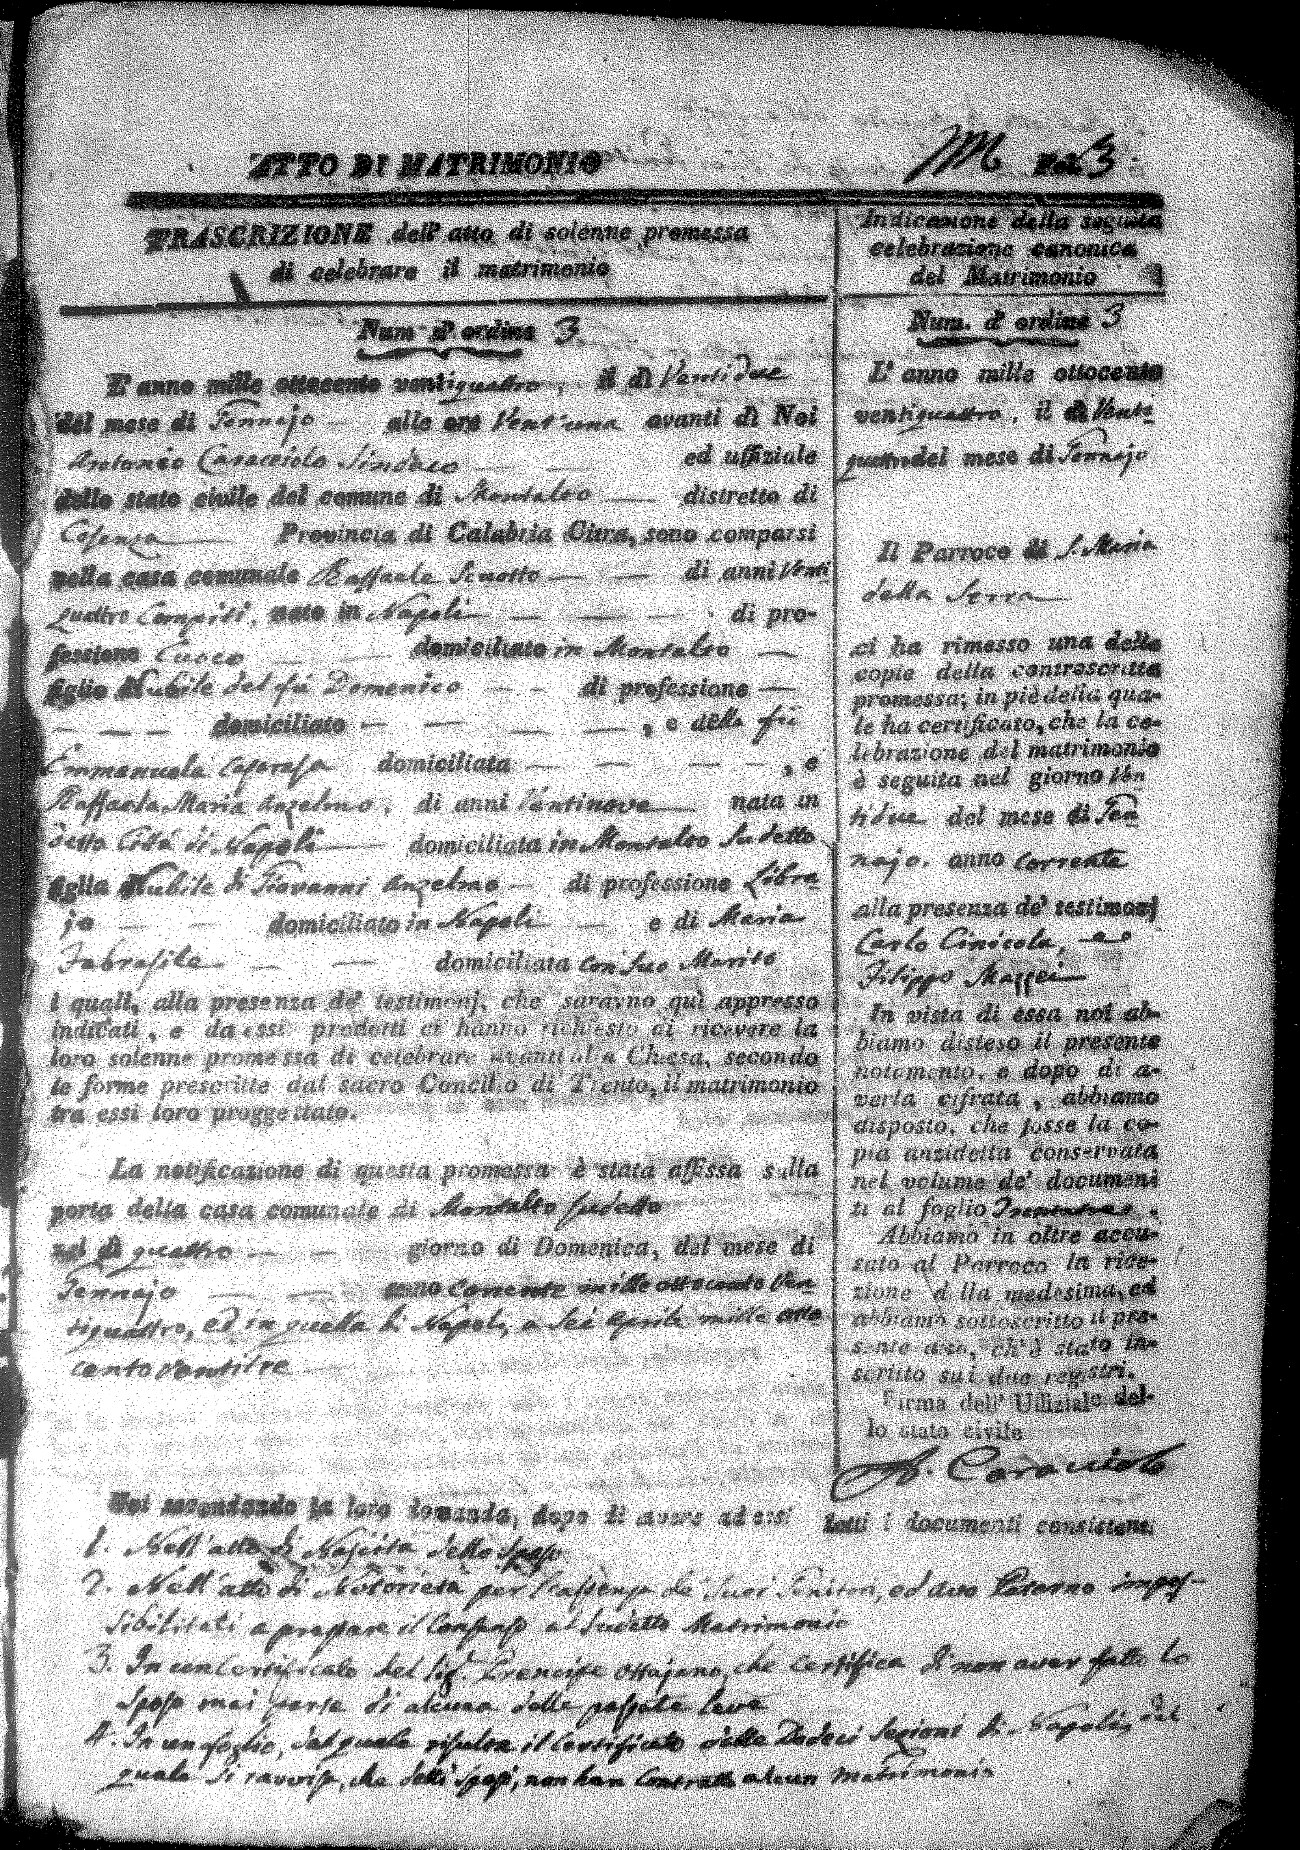 ATTO DI MATRIMONIO
Fol. 3
TRASCRIZIONE dell' atto di solenne promessa
di celebrare il matrimonio
Num. d' ordine 3
L' anno mille ottocento ventiquattro, il dì Ventidue
del mese di Gennajo alle ore Vent'una avanti di Noi
Antonio Caracciolo Sindaco ed uffiziale
dello stato civile del comune di Montalto distretto di
Cosenza Provincia di Calabria Citra, sono comparsi
nella casa comunale Raffaele Scuotto di anni Venti
quattro Compiti, nato in Napoli di pro-
fessione Cuoco domiciliato in Montalto
figlio Nubile del fù Domenico di professione
domiciliato , e della fù
Emmanuela domiciliata , e
Raffaela Maria Anzelmo, di anni Ventinove nata in
detta Città di Napoli domiciliata in Montalto Sudetto
figlia Nubile di Giovanni Anzelmo di professione Libra
jo domiciliato in Napoli e di Maria
domiciliata con suo Marito
i quali, alla presenza de' testimonj, che saranno quì appresso
indicati, e da essi prodotti ci hanno richiesto di ricevere la
loro solenne promessa di celebrare avanti alla Chiesa, secondo
le forme prescritte dal sacro Concilio di Trento, il matrimonio
tra essi loro proggettato.
La notificazione di questa promessa è stata affissa sulla
porta della casa comunale di Montalto sudetto
nel dì quattro giorno di Domenica, del mese di
Gennajo anno corrente mille ottocento Ven-
tiquattro, ed in quella di Napoli, a sei Aprile mille otto
cento ventitre
Indicazione della seguita
celebrazione canonica
del Matrimonio
Num. d' ordine 3
L' anno mille ottocento
ventiquattro, il dì Venti
quattro del mese di Gennajo
Il Parroco di S. Maria
della Serra
ci ha rimesso una delle
copie della controscritta
promessa; in piè della qua-
le ha certificato, che la ce-
lebrazione del matrimonio
è seguita nel giorno Ven
tidue del mese di Gen
najo, anno corrente
alla presenza de' testimonj
Carlo Cinicola, e
Filippo Mazzei
In vista di essa noi ab-
biamo disteso il presente
notamento, e dopo di a-
verla cifrata, abbiamo
disposto, che fosse la co-
pia anzidetta conservata
nel volume de' documen-
ti al foglio
Abbiamo in oltre accu-
sato al Parroco la rice-
zione della medesima, ed
abbiamo sottoscritto il pre-
sente atto, ch' è stato in-
scritto sui due registri.
Firma dell' Uffiziale del-
lo stato civile
A. Caracciolo
Noi secondando la loro domanda, dopo di avere ad essi letti i documenti consistenti
1. Nell'atto di Nascita dello sposo
2. Nell'atto di Notorietà per l'assenza de' suoi Genitori, ed avo Paterno impos-
sibilitati a prestare il Consenso al sudetto Matrimonio
3. In un Certificato del Sig.r Prencipe Ottajano, che certifica di non aver fatto lo
sposo mai parte di alcuna delle passate leve
4. In un foglio, dal quale risulta il Certificato delle Dodeci Sezioni di Napoli, dal
quale si ravvisa, che detti sposi, non han contratto alcun Matrimonio